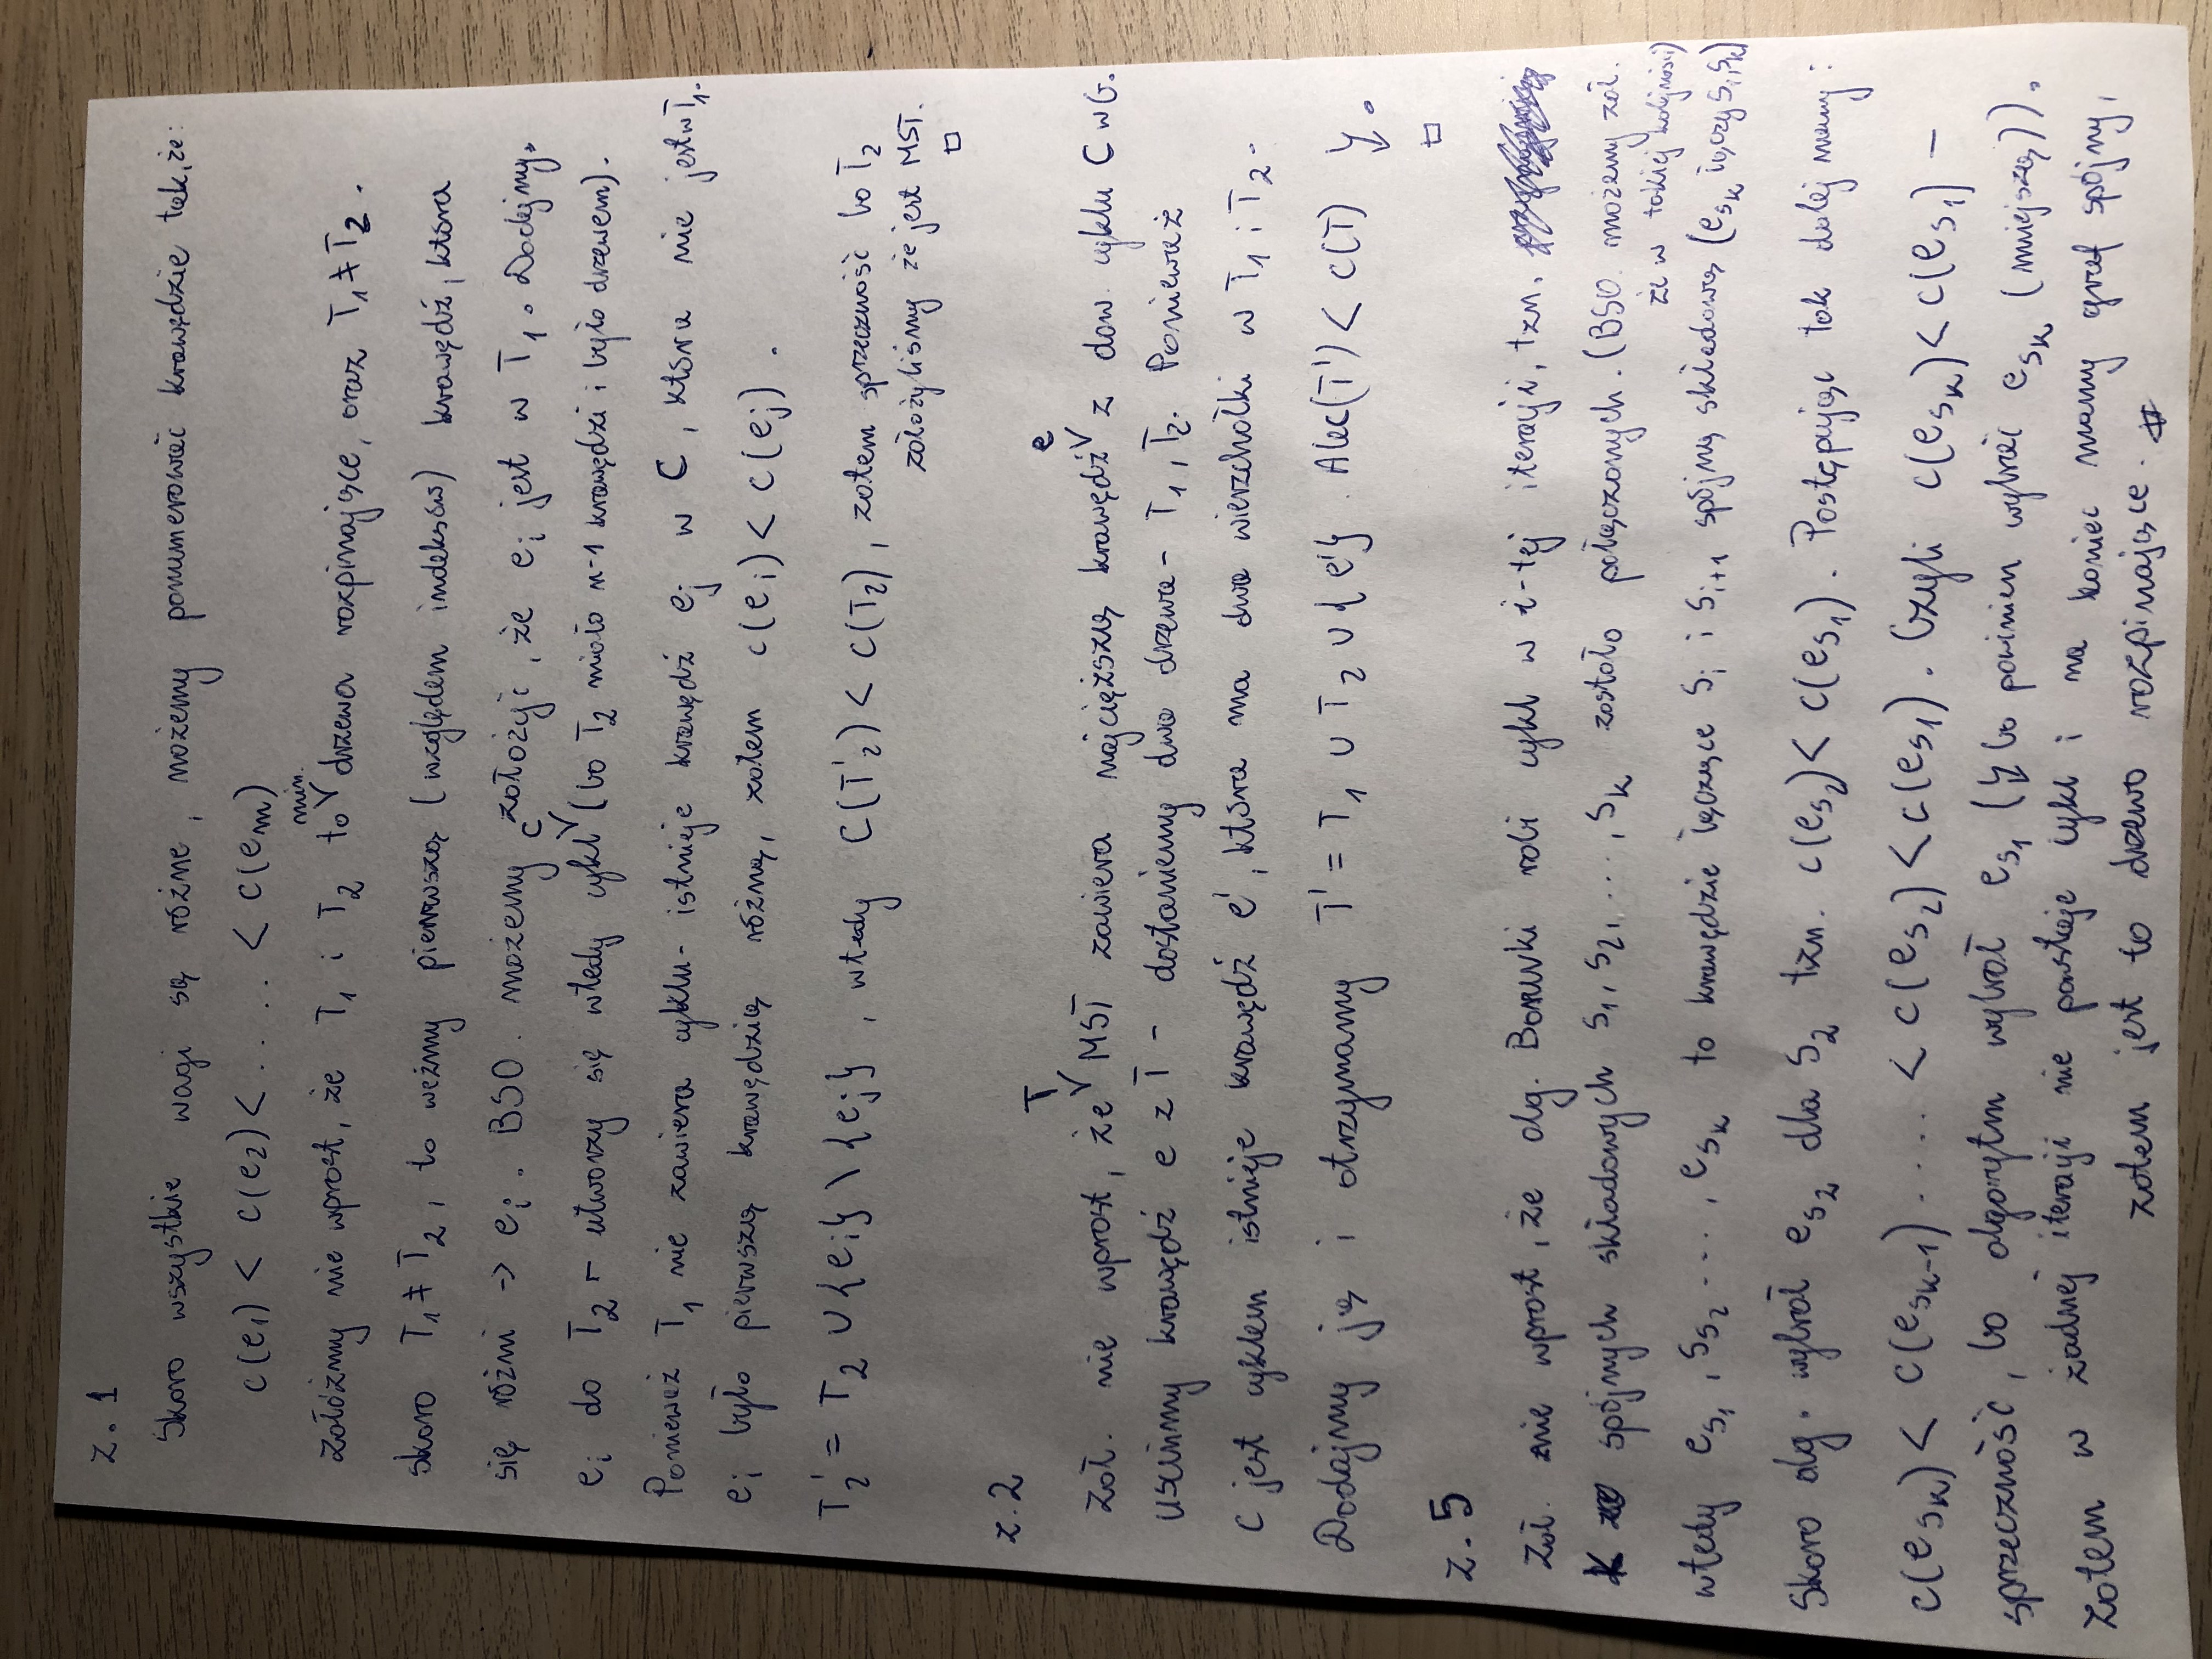 z. 1
Skoro wszystkie wagi są różne, możemy ponumerować krawędzie tak, że:
c(e₁) < c(e₂) < ..... < c(eₘ)
min.
Załóżmy nie wprost, że T₁ i T₂ to drzewa rozpinające, oraz T₁ ≠ T₂.
skoro T₁ ≠ T₂, to weźmy pierwszą (względem indeksów) krawędź, która
się różni -> eᵢ. BSO. możemy założyć, że eᵢ jest w T₁. Dodajmy
C
eᵢ do T₂ - utworzy się wtedy cykl (bo T₂ miało n-1 krawędzi i było drzewem).
Ponieważ T₁ nie zawiera cyklu - istnieje krawędź eⱼ w C, która nie jest w T₁.
eᵢ było pierwszą krawędzią różną, zatem c(eᵢ) < c(eⱼ).
T₂' = T₂ ∪ {eᵢ} \ {eⱼ}, wtedy C(T'₂) < C(T₂), zatem sprzeczność bo T₂
założyliśmy że jest MST.
□
z. 2
T e
Zał. nie wprost, że MST zawiera najcięższą krawędź z dow. cyklu C w G.
Usuńmy krawędź e z T - dostaniemy dwa drzewa - T₁, T₂. Ponieważ
C jest cyklem istnieje krawędź e', która ma dwa wierzchołki w T₁ i T₂.
Dodajmy ją i otrzymamy T' = T₁ ∪ T₂ ∪ {e'}. Ale c(T') < c(T) ↯.
□
z. 5
Zał. nie wprost, że alg. Boruvki robi cykl w i-tej iteracji, tzn.
k spójnych składowych S₁, S₂, ..., Sₖ zostało połączonych. (BSO. możemy zał.
że w takiej kolejności)
wtedy e_S₁, S_S₂ ..., e_Sₖ to krawędzie łączące Sᵢ i Sᵢ₊₁ spójną składową (e_Sₖ łączy S₁, Sₖ)
Skoro alg. wybrał e_S₂ dla S₂ tzn. c(e_S₂) < c(e_S₁). Postępując tak dalej mamy:
c(e_Sₖ) < c(e_Sₖ₋₁) ..... < c(e_S₂) < c(e_S₁). Czyli c(e_Sₖ) < c(e_S₁) -
sprzeczność, bo algorytm wybrał e_S₁ (↯ bo powinien wybrać e_Sₖ (mniejszą)).
Zatem w żadnej iteracji nie powstaje cykl i na koniec mamy graf spójny,
zatem jest to drzewo rozpinające.